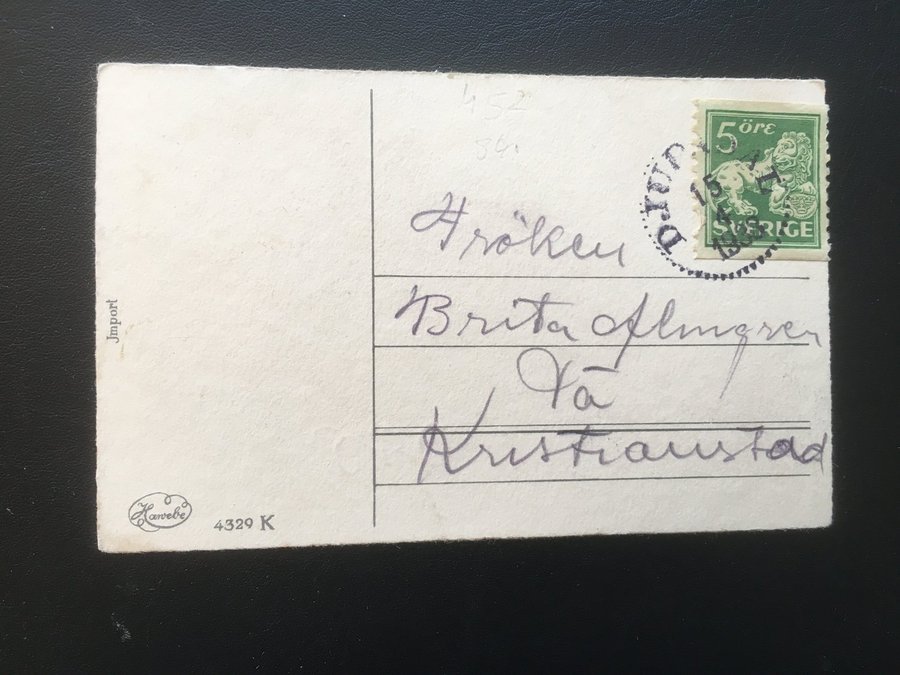 452
5 öre
SVERIGE
DJUPADAL
15
4
Fröken
Brita Almgren
Vä
Kristianstad
Jmport
Hawebe
4329 K